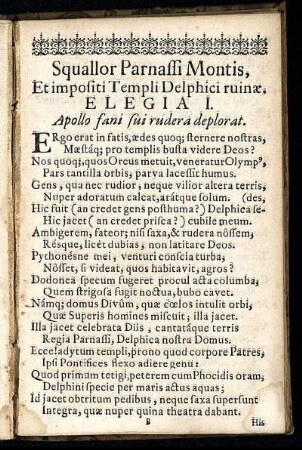 Squallor Parnassi Montis,
Et impositi Templi Delphici ruinæ.
ELEGIA I.
Apollo fani sui rudera deplorat.
ERgo erat in fatis, ædes quoq; sternere nostras,
Mæstáq; pro templis busta videre Deos?
Nos quoq;, quos Orcus metuit, veneratur Olympꝰ,
Pars tantilla orbis, parva lacessit humus.
Gens, qua nec rudior, neque vilior altera terris,
Nuper adoratum calcat, arátque solum. (des,
Hic fuit (an credet gens posthuma?) Delphica se-
Hic jacet (an credet prisca?) cubile meum.
Ambigerem, fateor; nisi saxa, & rudera nôssem,
Résque, licèt dubias, non latitare Deos.
Pythonésne mei, venturi conscia turba,
Nôsset, si videat, quos habitavit, agros?
Dodonæa specum sugeret procul acta columba,
Quem strigosa fugit noctua, bubo cavet.
Námq; domus Divûm, quæ cœlos intulit orbi,
Quæ Superis homines miscuit; illa jacet.
Illa jacet celebrata Diis, cantatáque terris
Regia Parnassi, Delphica nostra Domus.
Ecce! adytum templi, prono quod corpore Patres,
Ipsi Pontifices flexo adiere genu:
Quod primum tetigi, peterem cum Phocidis oram,
Delphini specie per maris actus aquas;
Id jacet obtritum pedibus, neque saxa supersunt
Integra, quæ nuper quina theatra dabant.
B His